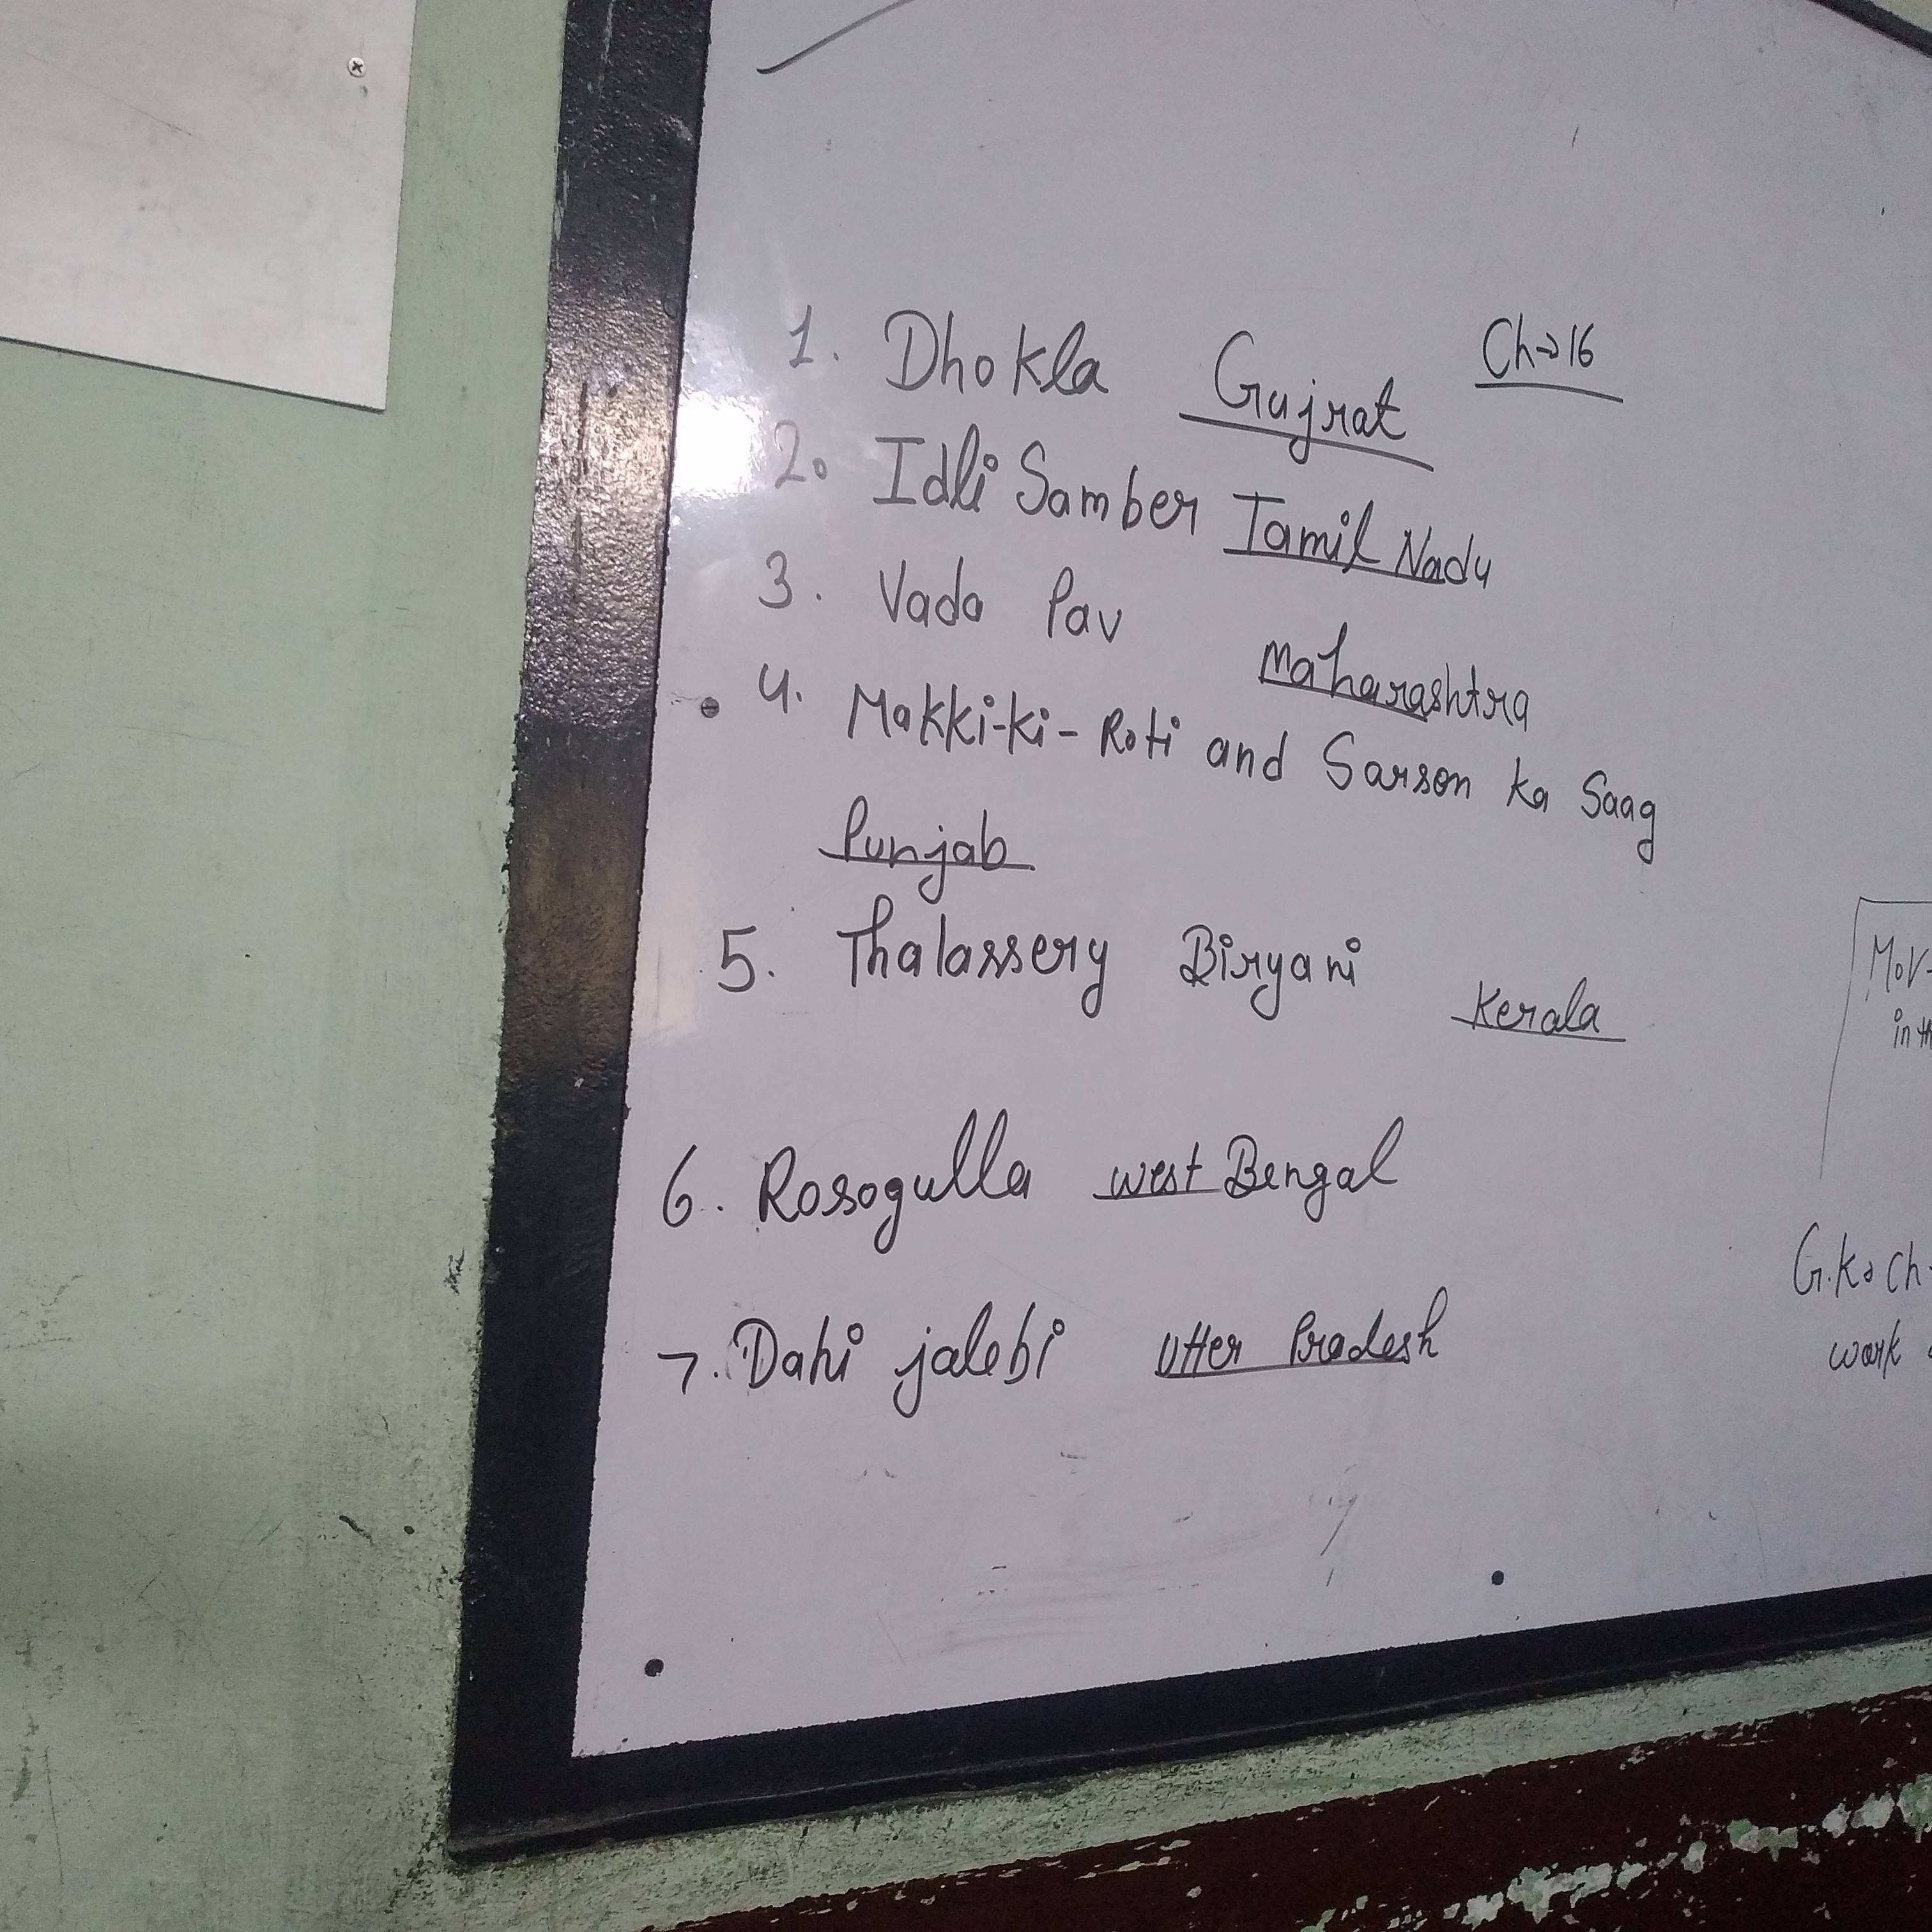 Ch→16
1. Dhokla Gujrat
2. Idli Samber Tamil Nadu
3. Vada Pav Maharashtra
4. Makki-ki-Roti and Sarson ka Saag
Punjab
5. Thalassery Biryani Kerala
6. Rosogulla west Bengal
7. Dahi jalebi Utter Pradesh
in
G.K→ Ch
work